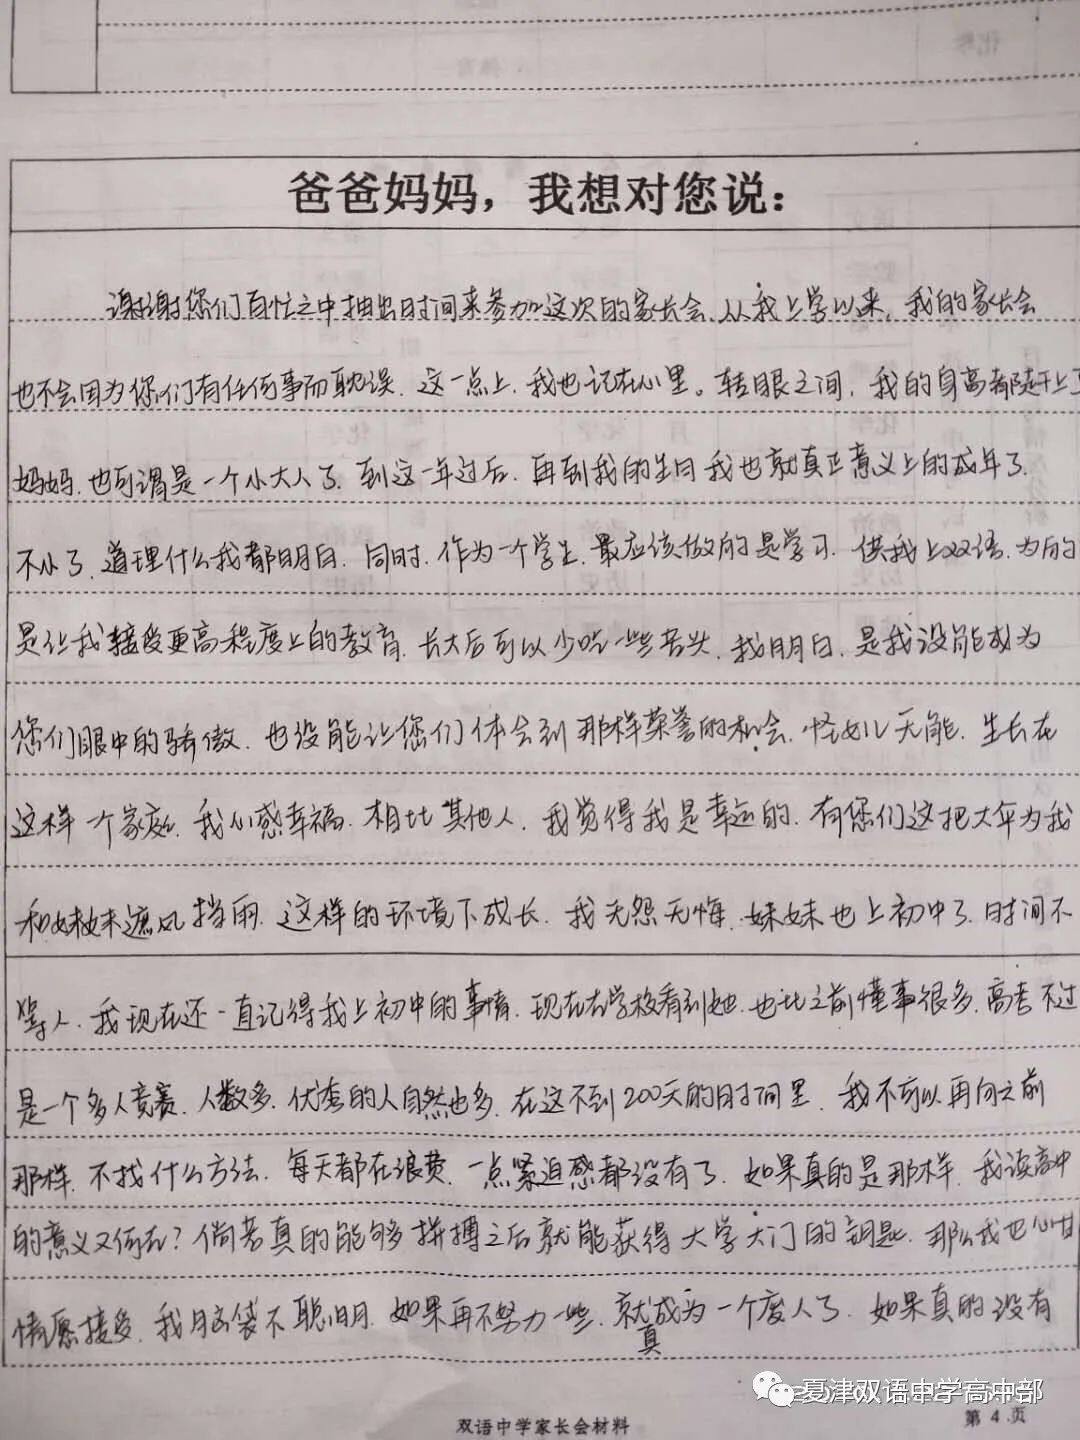 化学
爸爸妈妈，我想对您说：
谢谢您们百忙之中抽出时间来参加这次的家长会.从我上学以来，我的家长会
也不会因为你们有任何事而耽误.这一点上.我也记在心里。转眼之间，我的身高都赶上了
妈妈.也可谓是一个小大人了.到这一年过后.再到我的生日我也就真正意义上的成年了.
不小了.道理什么我都明白.同时.作为一个学生.最应该做的是学习.供我上双语.为的
是让我接受更高程度上的教育.长大后可以少吃一些苦头.我明白.是我没能成为
您们眼中的骄傲.也没能让您们体会到那样荣誉的机会.怪女儿无能.生长在
这样一个家庭.我心感幸福.相比其他人.我觉得我是幸运的.有您们这把大伞为我
和妹妹遮风挡雨.这样的环境下成长.我无怨无悔.妹妹也上初中了.时间不
等人.我现在还一直记得我上初中的事情.现在在学校看到她.也比之前懂事很多.高考不过
是一个多人竞赛.人数多.优秀的人自然也多.在这不到200天的时间里.我不可以再向之前
那样.不找什么方法.每天都在浪费.一点紧迫感都没有了.如果真的是那样.我读高中
的意义又何在？倘若真的能够拼搏之后就能获得大学大门的钥匙.那么我也心甘
情愿接受.我脑袋不聪明.如果再不努力一些.就真成为一个废人了.如果真的没有
夏津双语中学高中部
双语中学家长会材料
第 4 页